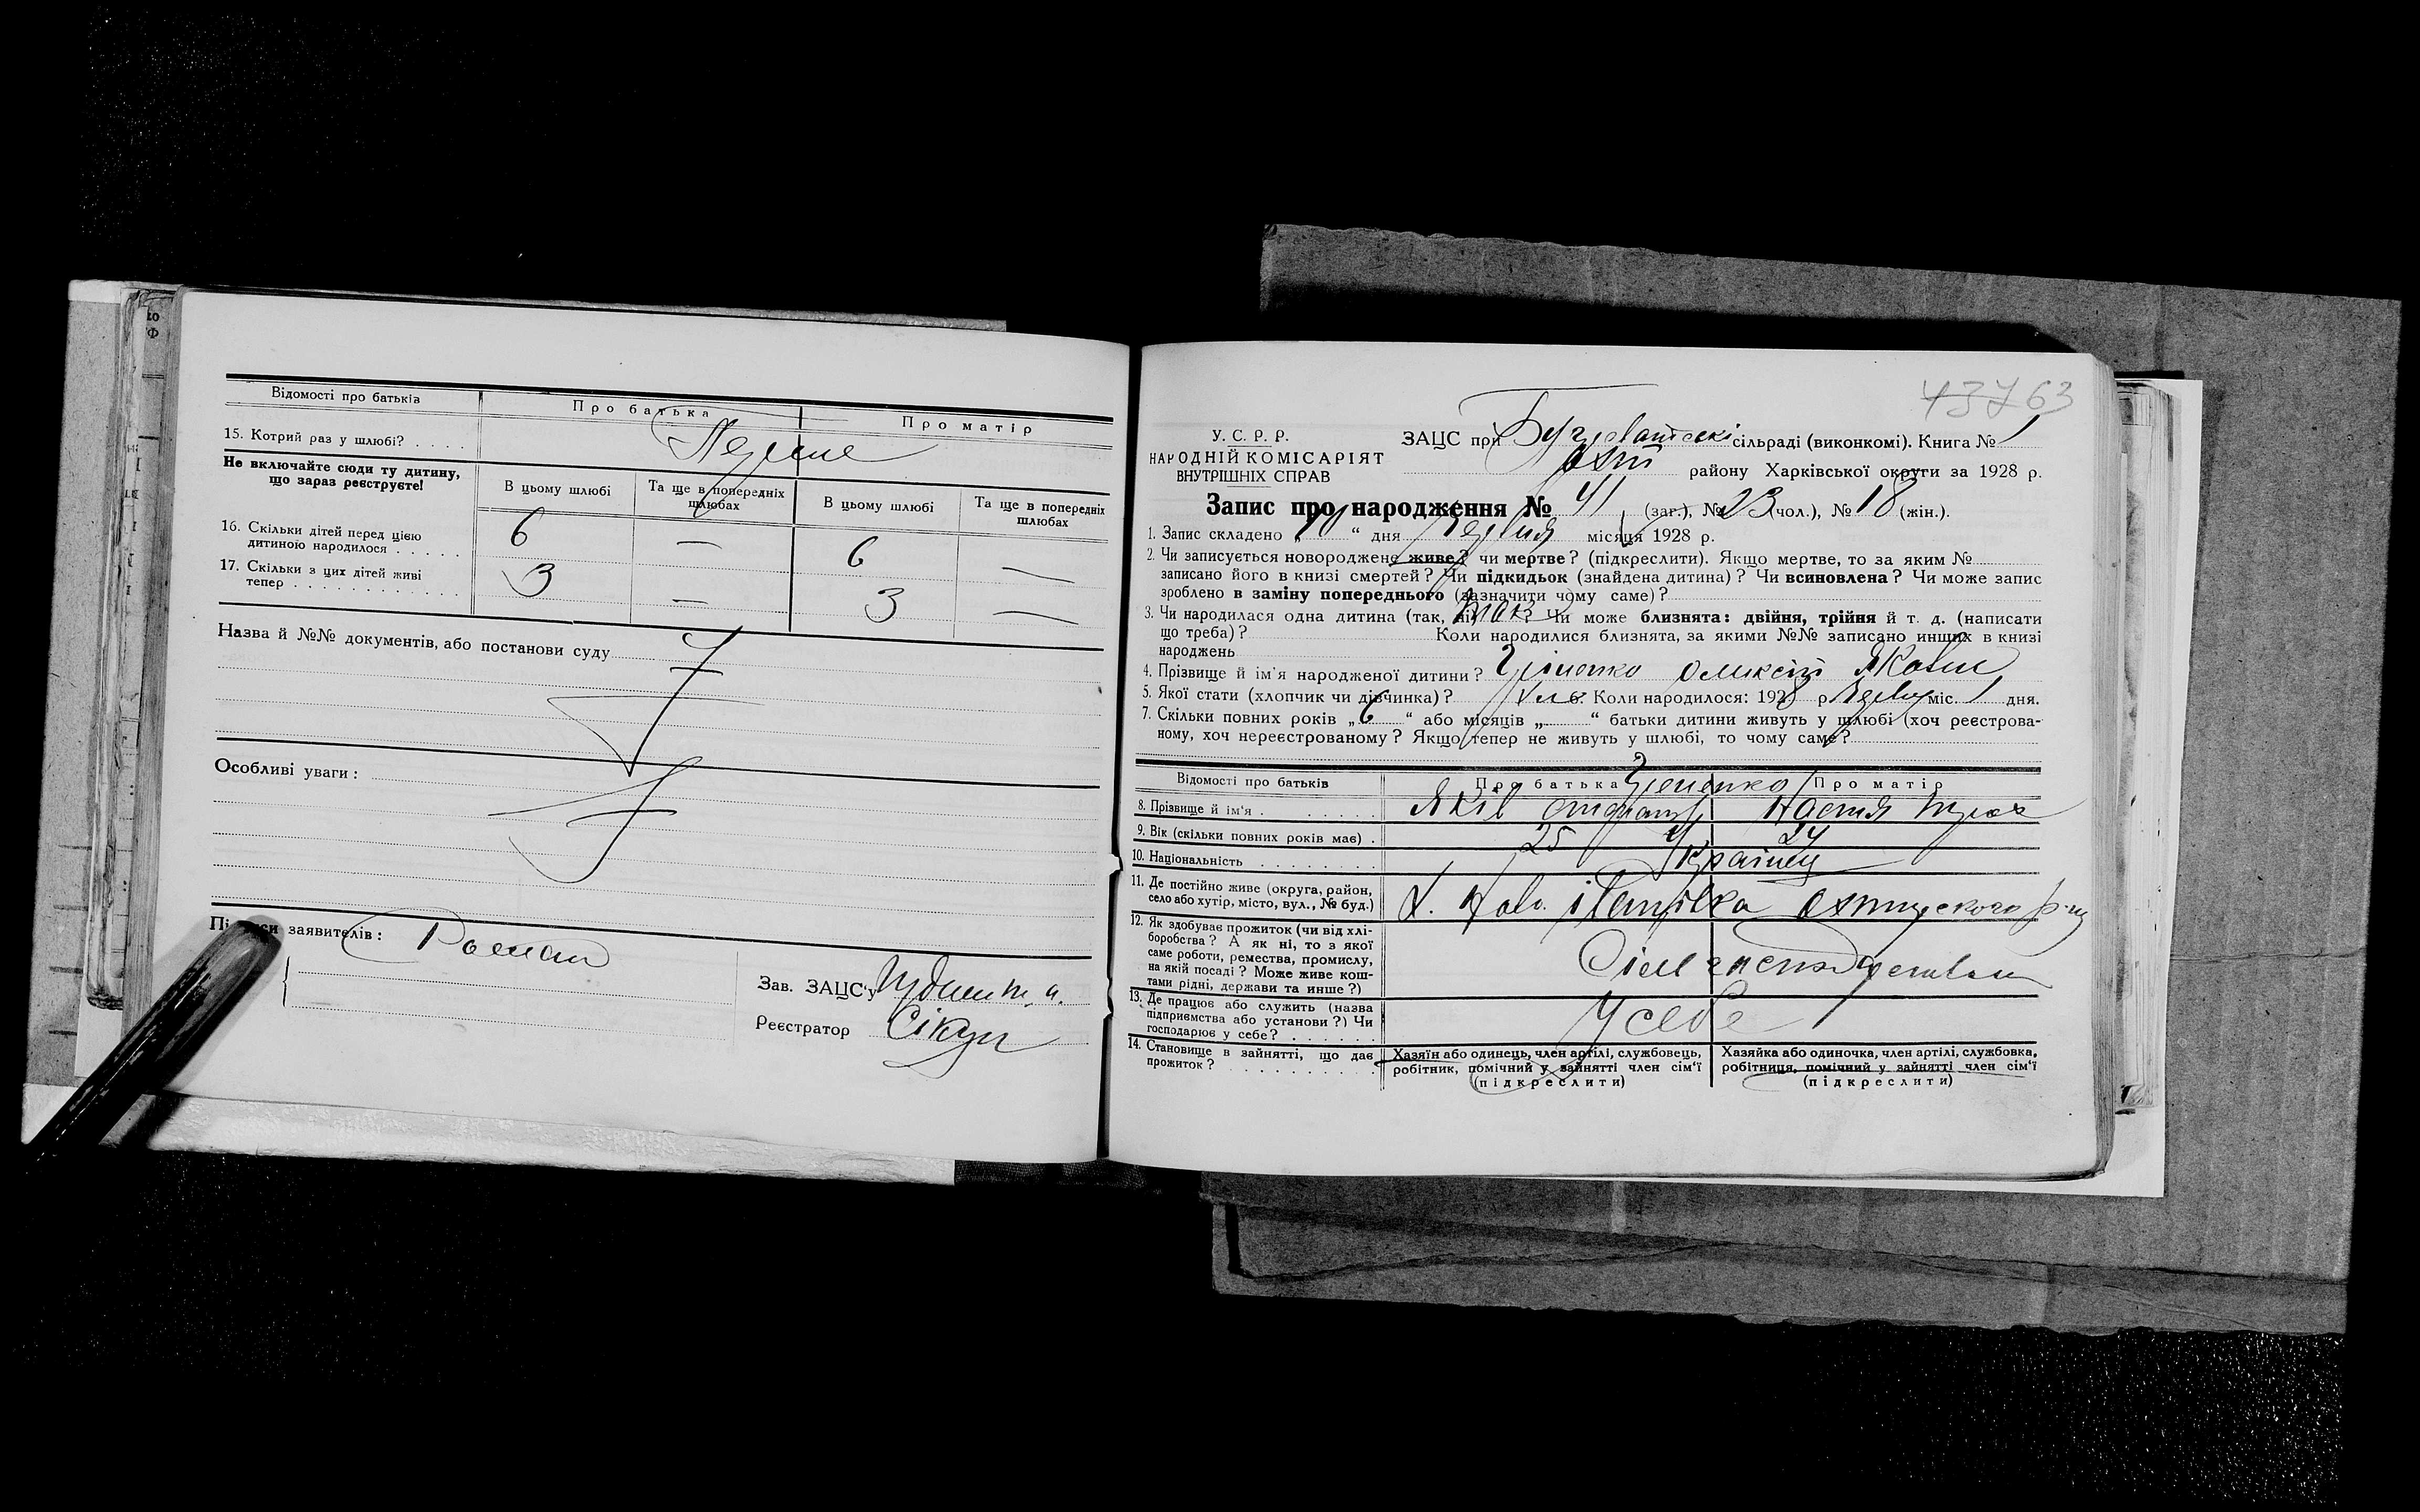 Відомості про батьків
Про батька
Про матір
15. Котрий раз у шлюбі? . . . .
Не включайте сюди ту дитину,
що зараз реєструєте!
В цьому шлюбі
Та ще в попередніх
шлюбах
В цьому шлюбі
Та ще в попередніх
шлюбах
16. Скільки дітей перед цією
дитиною народилося . . . . .
6 — 6 —
17. Скільки з цих дітей живі
тепер . . . . . . . . . . . . .
3 — 3 —
Назва й №№ документів, або постанови суду
Особливі уваги:
Підписи заявителів:
Зав. ЗАЦС'у
Реєстратор
63
У. С. Р. Р.
НАРОДНІЙ КОМІСАРІЯТ
ВНУТРІШНІХ СПРАВ
ЗАЦС при сільраді (виконкомі). Книга № 1
Охт району Харківської округи за 1928 р.
Запис про народження № 41 (заг.), № 23 (чол.), № 18 (жін.).
1. Запис складено „10“ дня місяця 1928 р.
2. Чи записується новороджене живе? чи мертве? (підкреслити). Якщо мертве, то за яким №
записано його в книзі смертей? Чи підкидьок (знайдена дитина)? Чи всиновлена? Чи може запис
зроблено в заміну попереднього (зазначити чому саме)?
3. Чи народилася одна дитина (так, ні)? так Чи може близнята: двійня, трійня й т. д. (написати
що треба)? Коли народилися близнята, за якими №№ записано инших в книзі
народжень
4. Прізвище й ім'я народженої дитини? Олексій Яков
5. Якої стати (хлопчик чи дівчинка)? Коли народилося: 1928 р. міс. 1 дня.
7. Скільки повних років „6“ або місяців „ “ батьки дитини живуть у шлюбі (хоч реєстрова-
ному, хоч нереєстрованому? Якщо тепер не живуть у шлюбі, то чому саме?
Відомості про батьків
Про батька
Про матір
8. Прізвище й ім'я . . . . . . .
Яків Настя
9. Вік (скільки повних років має) .
25 24
10. Національність . . . . . . . .
Українці
11. Де постійно живе (округа, район,
село або хутір, місто, вул., № буд.)
12. Як здобуває прожиток (чи від хлі-
боробства? А як ні, то з якої
саме роботи, ремества, промислу,
на якій посаді? Може живе кош-
тами рідні, держави та инше?)
13. Де працює або служить (назва
підприємства або установи?) Чи
господарює у себе? . . . . . .
У себе
14. Становище в зайнятті, що дає
прожиток? . . . . . . . . . . .
Хазяїн або одинець, член артілі, службовець,
робітник, помічний у зайнятті член сім'ї
(підкреслити)
Хазяйка або одиночка, член артілі, службовка,
робітниця, помічний у зайнятті член сім'ї
(підкреслити)